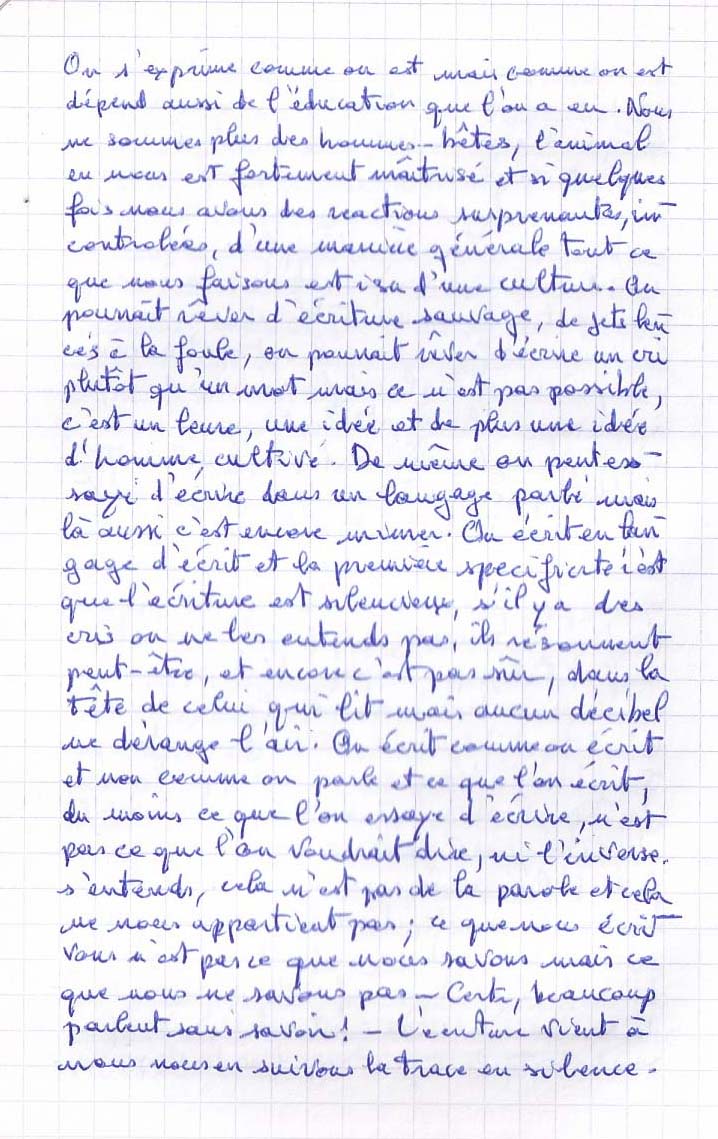 On s'exprime comme on est mais comme on est
dépend aussi de l'éducation que l'on a eu. Nous
ne sommes plus des hommes-bêtes, l'animal
en nous est fortement maîtrisé et si quelques
fois nous avons des reactions surprenantes, in
controlées, d'une manière générale tout ce
que nous faisons est issu d'une culture. On
pourrait rêver d'écriture sauvage, de jets lan
cés à la foule, on pourrait rêver d'écrire un cri
plutôt qu'un mot mais ce n'est pas possible,
c'est un leure, une idée et de plus une idée
d'homme cultivé. De même on peut es-
sayé d'écrire dans un langage parlé mais
là aussi c'est encore mimer. On écrit en lan
gage d'écrit et la première specificité c'est
que l'écriture est silencieuse, s'il y a des
cris on ne les entends pas, ils résonnent
peut-être, et encore c'est pas sûr, dans la
tête de celui qui lit mais aucun décibel
ne dérange l'air. On écrit comme on écrit
et non comme on parle et ce que l'on écrit,
du moins ce que l'on essaye d'écrire, n'est
pas ce que l'on voudrait dire, ni l'inverse.
s'entends, cela n'est pas de la parole et cela
ne nous appartient pas; ce que nous écri
vons n'est pas ce que nous savons mais ce
que nous ne savons pas - Certe, beaucoup
parlent sans savoir! - L'écriture vient à
nous nous en suivons la trace en silence.